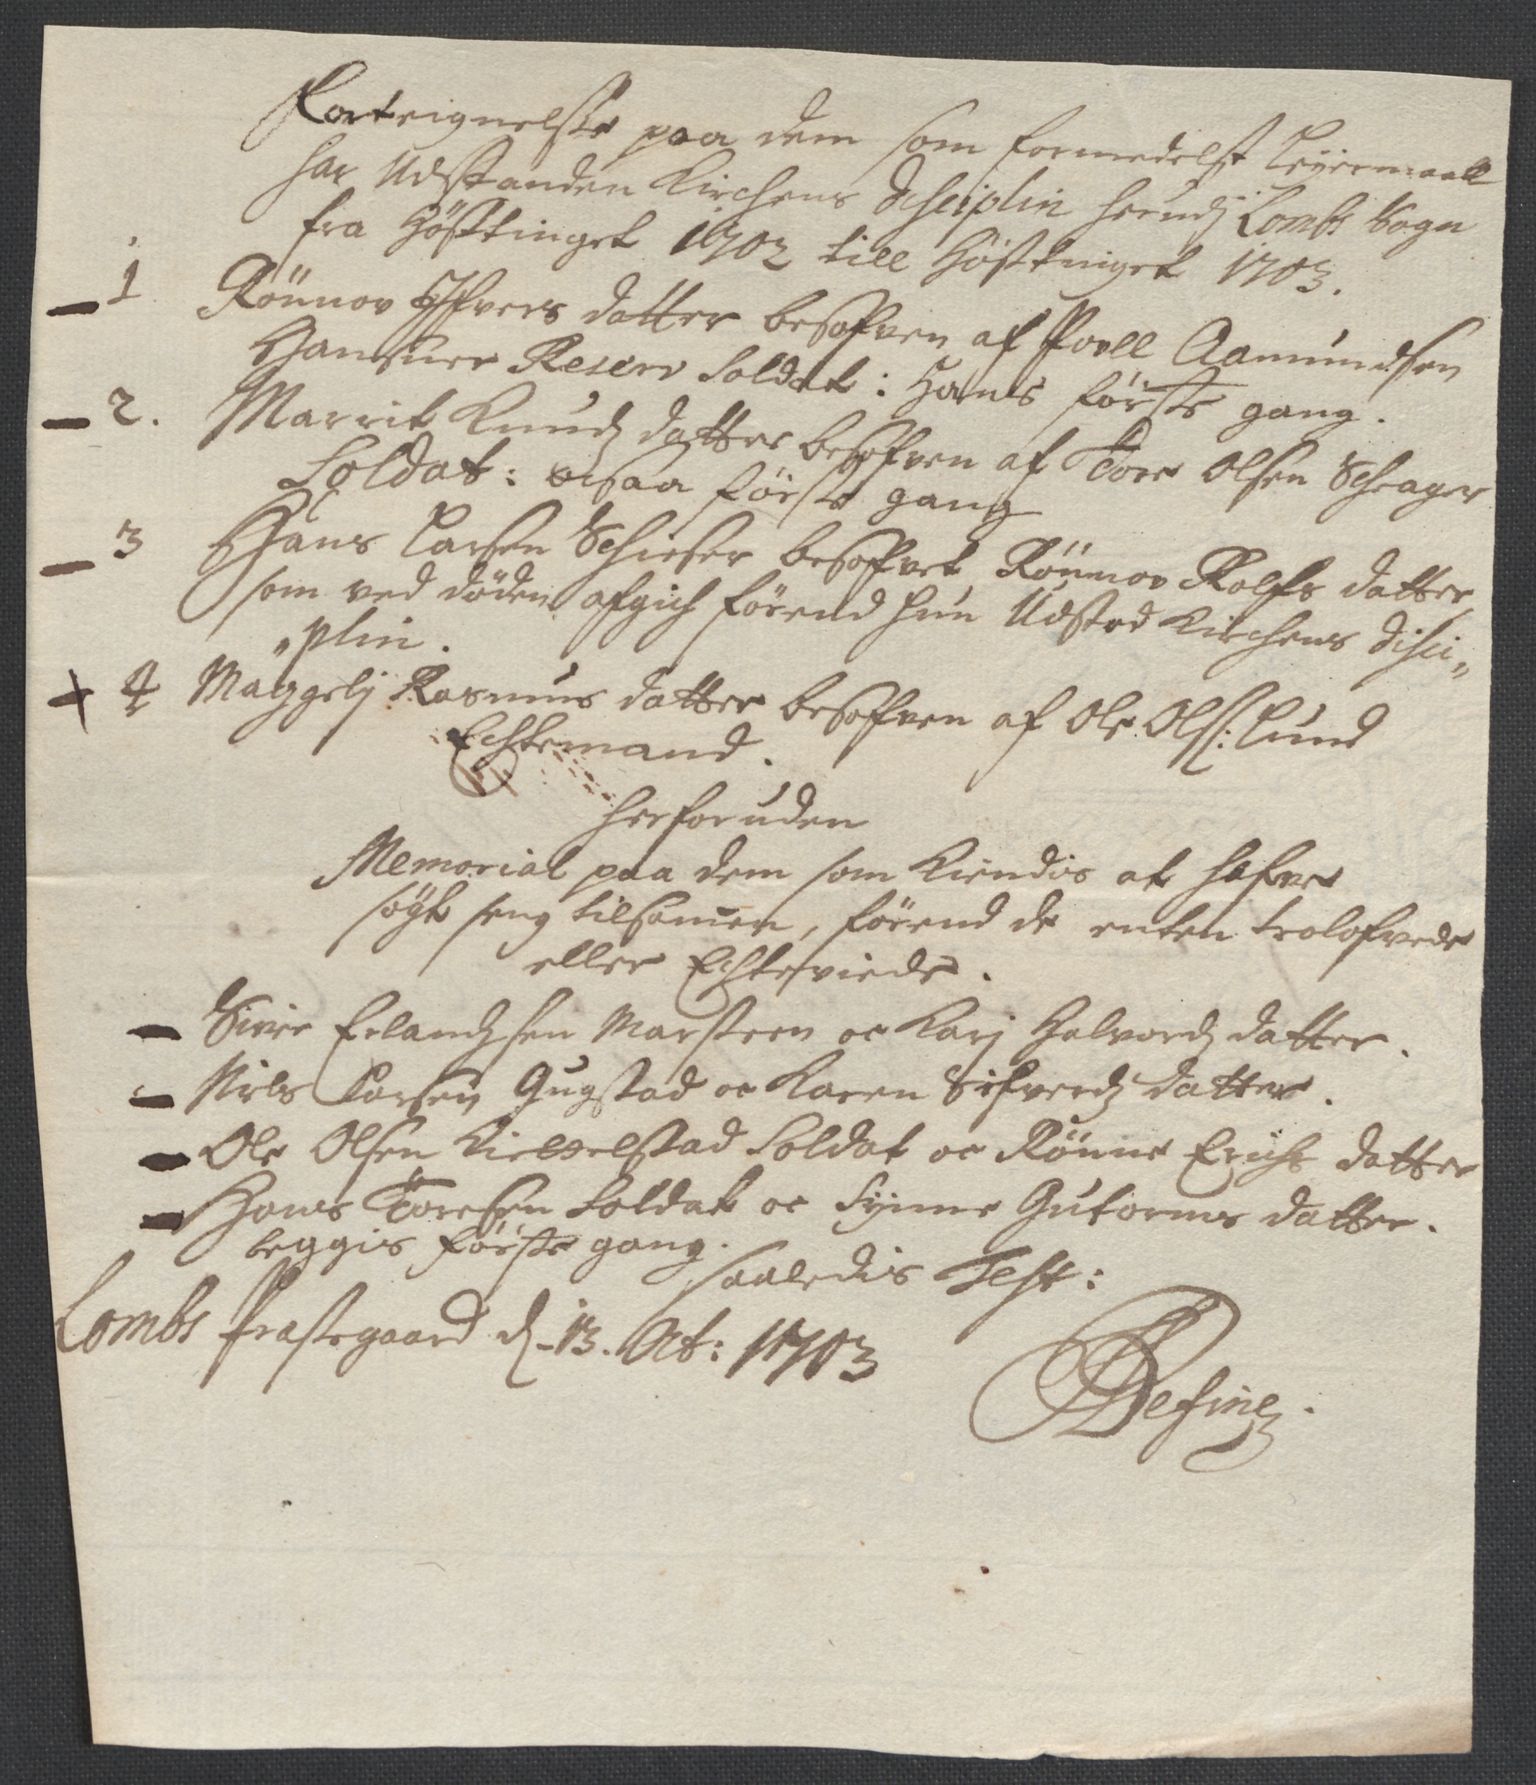 Forteignelse paa dem som formedelst Leyermaall
har Udstanden Kirchens Dsciplin herudj Lombs Sogn
fra Høsttinget 1702 till Høsttinget 1703.
1 Rönnov Ifvers datter besofven af Povell Aamundsen
Reserv Soldat: Hans förste gang.
2. Marrit Knudz datter besofven af Tore Olsen Schrager
Soldat: ocsaa förste gang
3 Hans Larsen besofvet Rönnov Rolfs datter,
som ved döden afgich förend hun Udstod Kirchens disci„
„plin.
4 Rasmus datter besofven af Ole Olss: Lund
Echtemand.
herforuden
Memorial paa dem som Kiendis at hafve
sögt seng tilsamen, förend de enten trolofvede
eller Echteviede.
Siver Erlandzsen Marsteen oc Karj Halvordz datter.
Niels Larsen Gugstad oc Karen Sifverdz datter.
Ole Olsen Soldat oc Rönne Erichs datter
Hans Toresen Soldat oc Synne Gutorms datter.
beggis förste gang.
saaledis Test:
Lombs Prestegaard d. 13. Oct: 1703